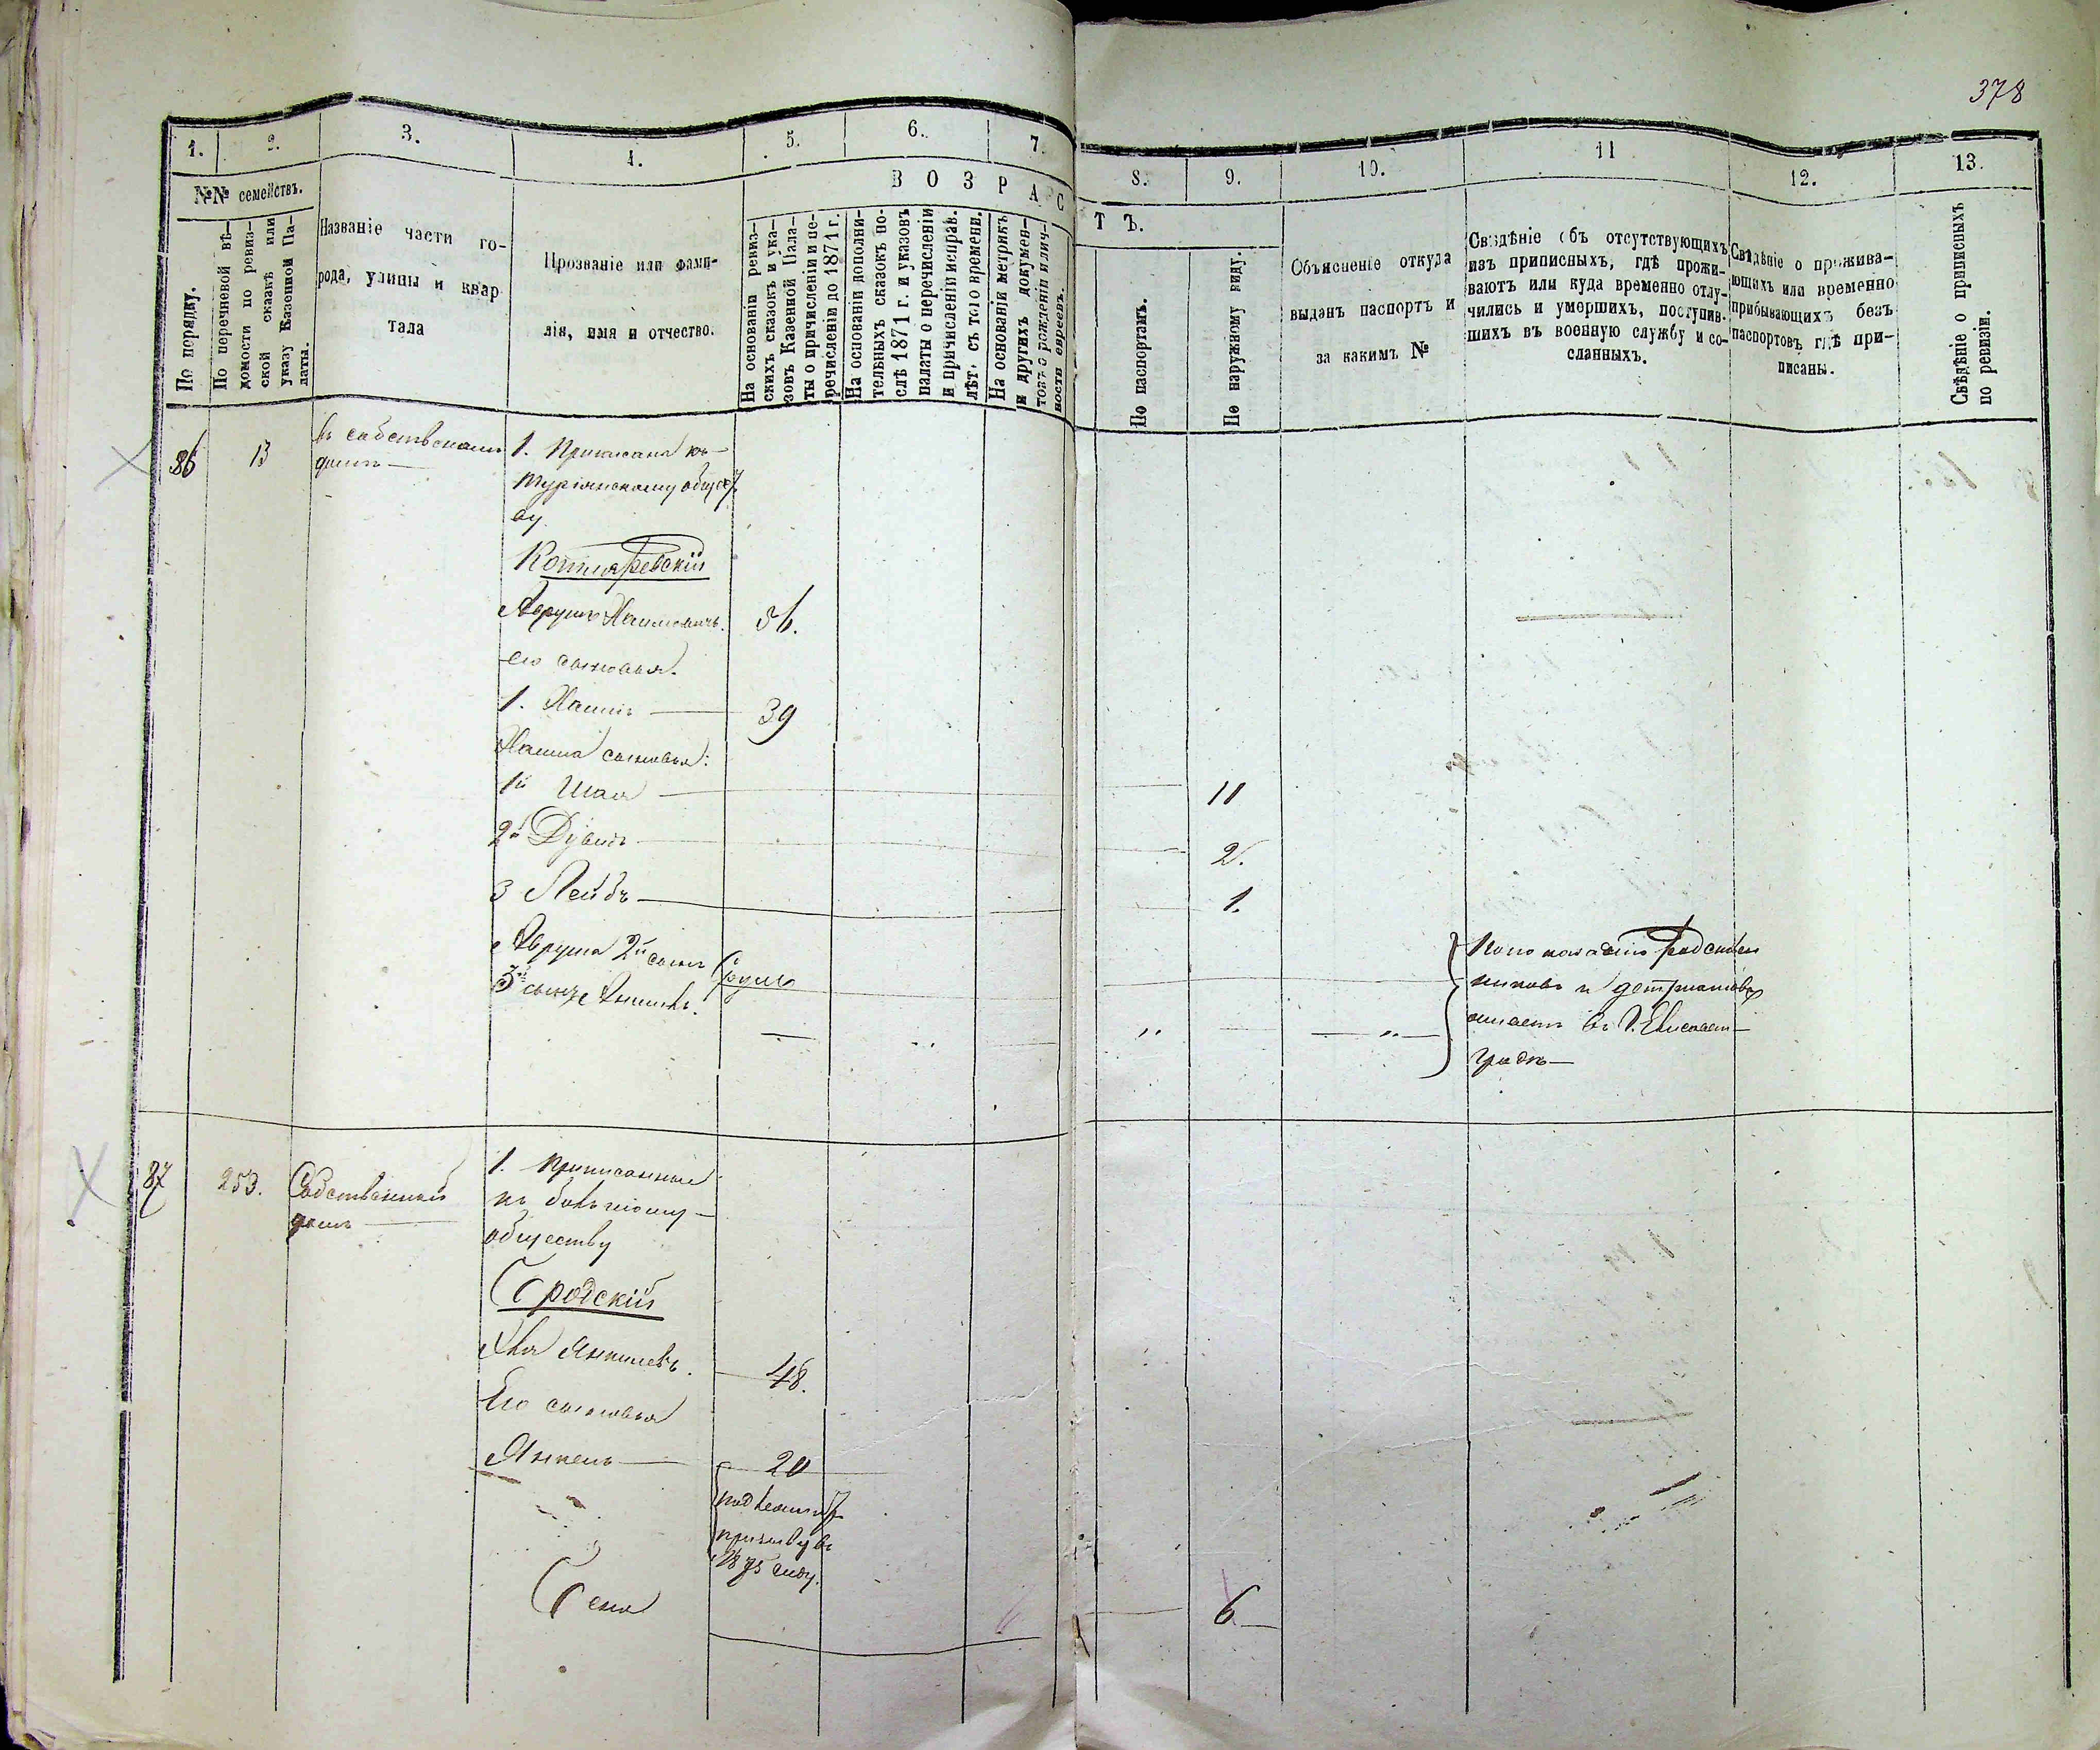 378
1.
2.
3.
4.
5.
6.
7.
8.
9.
10.
11
12.
13.
№№ семействъ.
По порядку.
По перечневой вѣ-
домости по ревиз-
ской сказкѣ или
указу Казенной Па-
латы.
Названіе части го-
рода, улицы и квар
тала
Прозваніе или фами-
лія, имя и отчество.
ВОЗРАСТЪ.
На основаніи ревиз-
скихъ сказокъ и ука-
зовъ Казенной Пала-
ты о причисленіи и пе-
речисленіи до 1871 г.
На основаніи дополни-
тельныхъ сказокъ по-
слѣ 1871 г. и указовъ
палаты о перечисленіи
и причисленіи исправ.
лѣтъ съ того времени.
На основаніи метрикъ
и другихъ докумен-
товъ о рожденіи и лич-
ности евреевъ.
По паспортамъ.
По наружному виду.
Объясненіе откуда
выданъ паспортъ и
за какимъ №
Свѣдѣніе объ отсутствующихъ
изъ приписныхъ, гдѣ прожи-
ваютъ или куда временно отлу-
чились и умершихъ, поступив-
шихъ въ военную службу и со-
сланныхъ.
Свѣдѣніе о прожива-
ющихъ или временно
прибывающихъ безъ
паспортовъ гдѣ при-
писаны.
Свѣдѣніе о приписныхъ
по ревизіи.
86 13 въ собственномъ
домѣ
1. Приписана къ
Туріянскому общест
ву
Котляревскій
Аврумъ Хаимовичъ. 56.
его сыновья.
1. Хаимъ 39
Хаима сыновья:
1й Шая 11
2й Дувидъ 2.
3 Лейбъ 1.
Аврума 2й сынъ Сруль
3й сынъ
По показанію родствен
никовъ и
въ Г. Елисавет-
градѣ
87 253. Собственный
домъ
1. Приписанные
къ
обществу
Сродскій
Янкилевъ. 48.
Его сыновья
Янкель 20
подлежитъ
призыву въ
1875 году.
Сеня 6